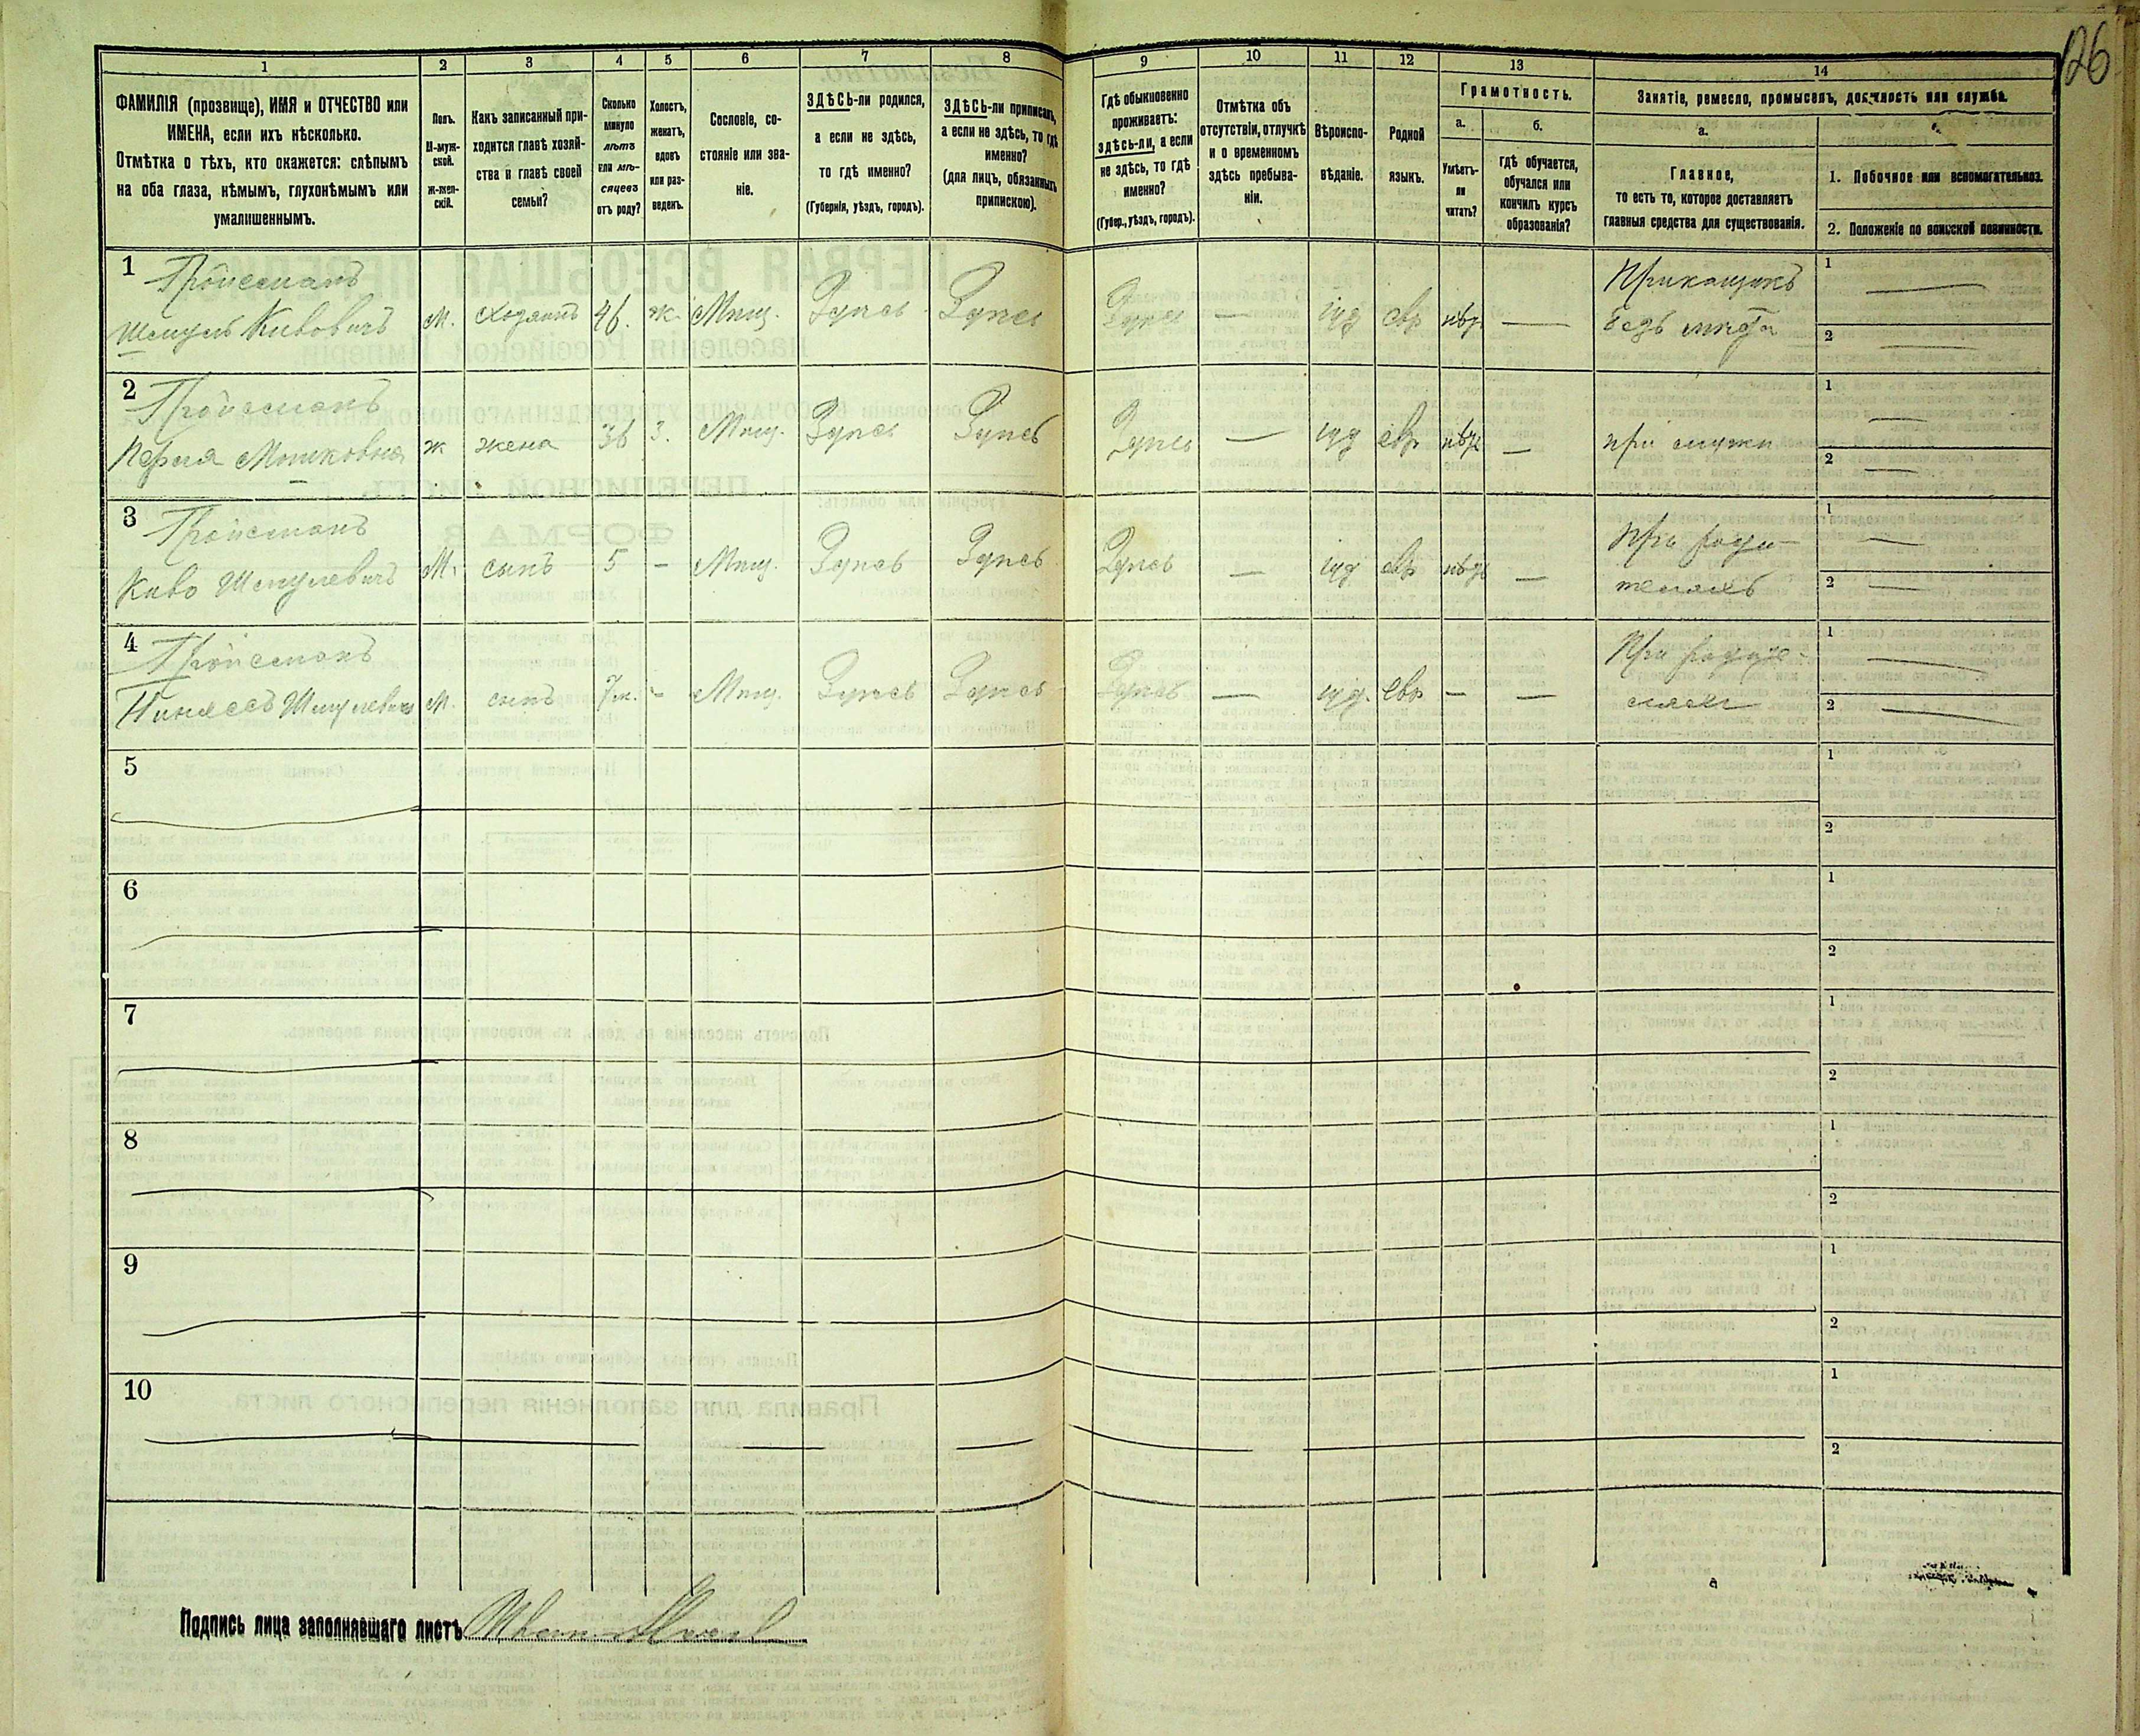 126
1
2
3
4
5
6
7
8
9
10
11
12
13
14
ФАМИЛІЯ (прозвище), ИМЯ и ОТЧЕСТВО или
ИМЕНА, если ихъ нѣсколько.
Отмѣтка о тѣхъ, кто окажется: слѣпымъ
на оба глаза, нѣмымъ, глухонѣмымъ или
умалишеннымъ.
Полъ.
М-муж-
ской.
ж-жен-
скій.
Какъ записанный при-
ходится главѣ хозяй-
ства и главѣ своей
семьи?
Сколько
минуло
лѣтъ
или мѣ-
сяцевъ
отъ роду?
Холостъ,
женатъ,
вдовъ
или раз-
веденъ.
Сословіе, со-
стояніе или зва-
ніе.
ЗДѢСЬ-ли родился,
а если не здѣсь,
то гдѣ именно?
(Губернія, уѣздъ, городъ).
ЗДѢСЬ-ли приписанъ,
а если не здѣсь, то гдѣ
именно?
(для лицъ, обязанныхъ
припискою).
Гдѣ обыкновенно
проживаетъ:
здѣсь-ли, а если
не здѣсь, то гдѣ
именно?
(Губер., уѣздъ, городъ).
Отмѣтка объ
отсутствіи, отлучкѣ
и о временномъ
здѣсь пребыва-
ніи.
Вѣроиспо-
вѣданіе.
Родной
языкъ.
Грамотность.
а.
Умѣетъ-
ли
читать?
б.
гдѣ обучается,
обучался или
кончилъ курсъ
образованія?
Занятіе, ремесло, промыселъ, должность или служба.
а.
Главное,
то есть то, которое доставляетъ
главныя средства для существованія.
1. Побочное или вспомогательное.
2. Положеніе по воинской повинности.
1
Пройсманъ
Шмуль Кивовичъ
М.
хозяинъ
46.
ж.
Мѣщ.
Здѣсь
Здѣсь
Здѣсь
—
іуд
евр
нѣтъ
—
Приказчикъ
безъ мѣста
1 —
2 —
2
Пройсманъ
Перля Мошковна
ж
жена
36
З.
Мѣщ.
Здѣсь
Здѣсь
Здѣсь
—
іуд
евр
нѣтъ
—
при мужѣ
1 —
2 —
3
Пройсманъ
Киво Шмулевичъ
М.
сынъ
5
-
Мѣщ.
Здѣсь
Здѣсь
Здѣсь
—
іуд
евр
нѣтъ
—
При роди-
теляхъ
1 —
2 —
4
Пройсманъ
Пинхасъ Шмулевичъ
М.
сынъ
7 м.
-
Мѣщ.
Здѣсь
Здѣсь
Здѣсь
—
іуд.
евр
—
—
При роди-
1 —
2 —
5
1
2
6
1
2
7
1
2
8
1
2
9
1
2
10
1
2
Подпись лица заполнявшаго листъ